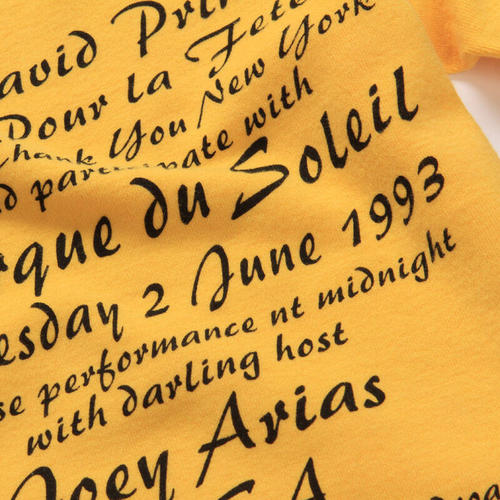 David Prin
Pour la Fete
Thank You New York
d participate with
rque du Soleil
esday 2 June 1993
se performance nt midnight
with darling host
Joey Arias